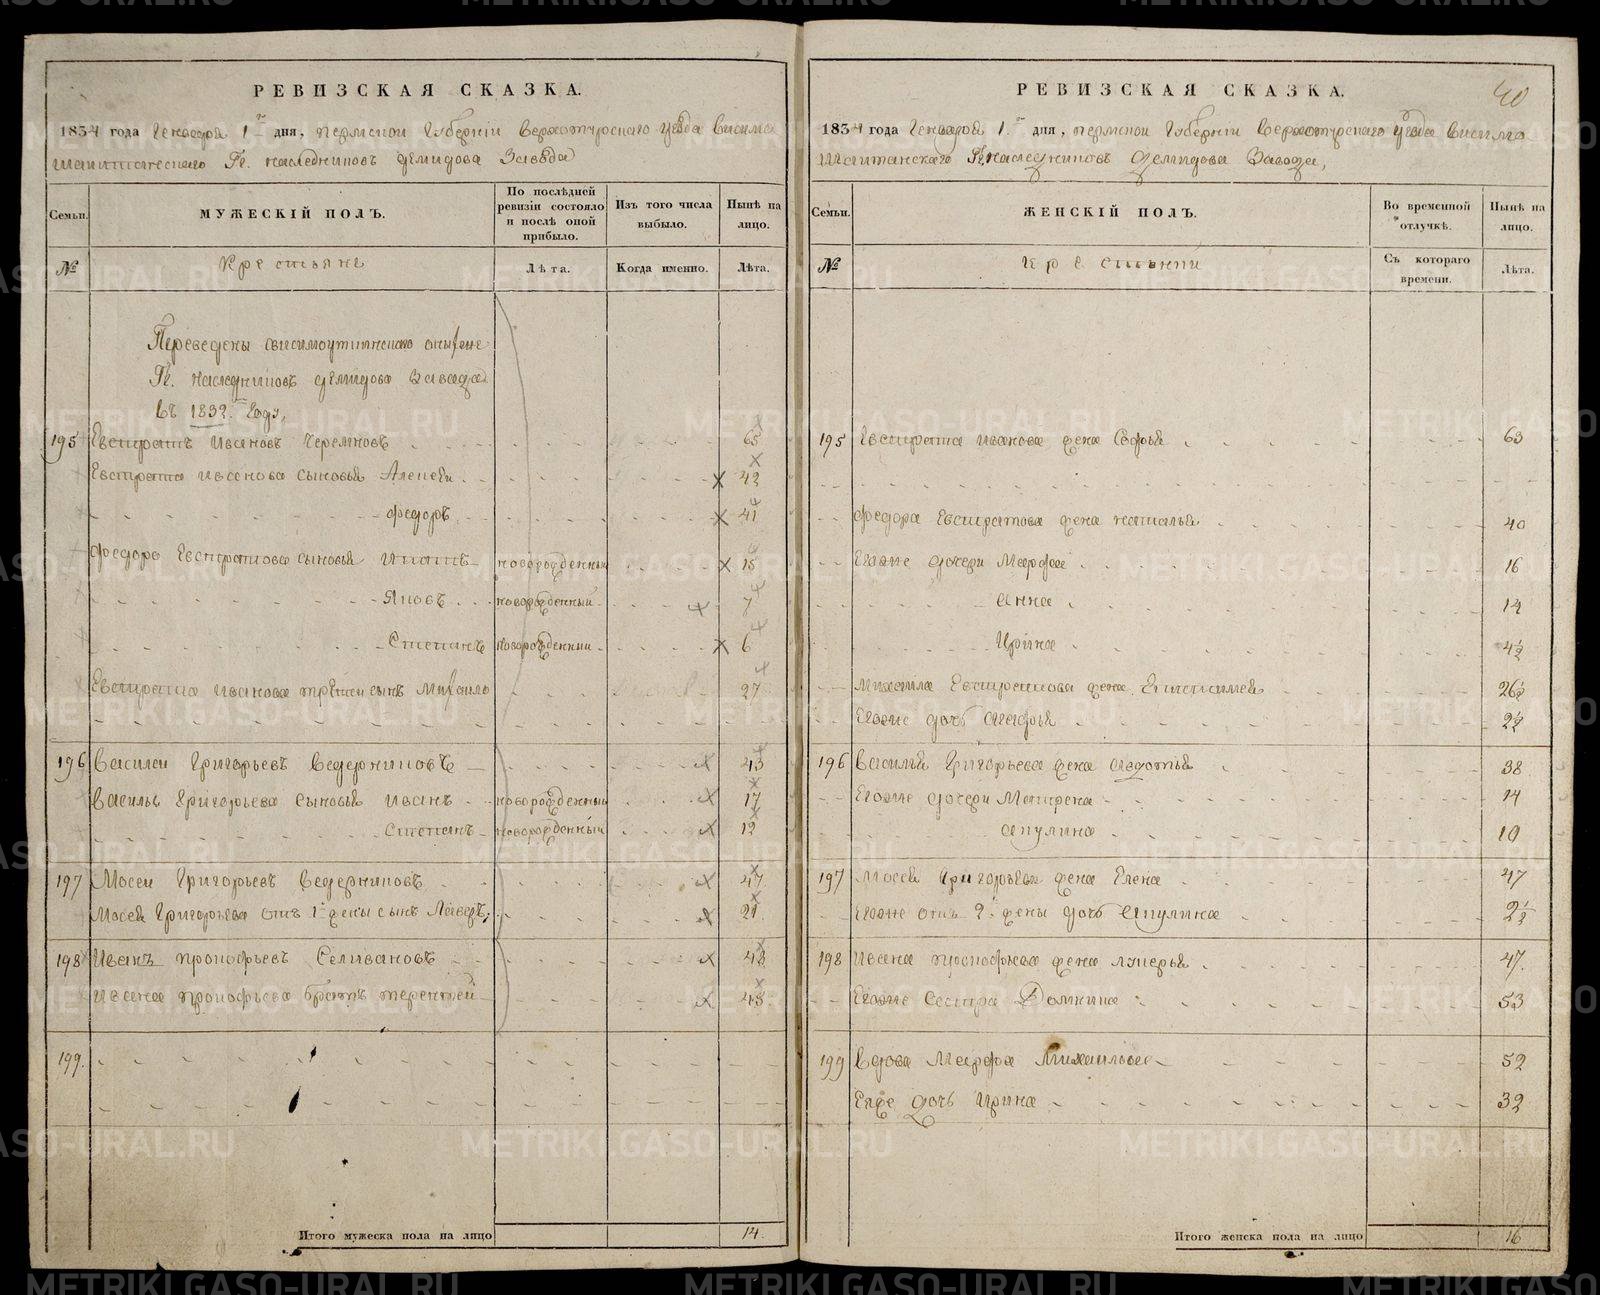 РЕВИЗСКАЯ СКАЗКА.
1834 года Генваря 1го дня, Пермской Губернии Верхотурского уезда Висимо
Шайтанского Гг. наследниковъ Демидова Завода
Семьи. МУЖЕСКІЙ ПОЛЪ. По послѣдней ревизіи состояло и послѣ оной прибыло. Изъ того числа выбыло. Нынѣ на лицо.
№ Крестьяне Лѣта. Когда именно. Лѣта.
Переведены
Гг. наследниковъ Демидова Завода
въ 1832. году,
195 Евстратъ Ивановъ Черемновъ 65
Евстрата Иванова сыновья Алексей 42
Федоръ 41
Федора Евстратова сыновья новорожденный 15
Яковъ новорожденный 7
Степанъ новорожденный 6
Евстрата Иванова третий сынъ Михайло 27
196 Василей Григорьевъ Ведерниковъ 43
Василья Григорьева сыновья Иванъ новорожденный 17
Степанъ новорожденный 12
197 Мосей Григорьевъ Ведерниковъ 47
Мосея Григорьева отъ 1й жены сынъ 21.
198 Иванъ Прокофьевъ Селивановъ 48
Ивана Прокофьева братъ Терентей 45
199.
Итого мужеска пола на лицо 14.
40
РЕВИЗСКАЯ СКАЗКА.
1834 года Генваря 1го дня, Пермской Губернии Верхотурского уезда Висимо
Шайтанского Гг. наследниковъ Демидова Завода,
Семьи. ЖЕНСКІЙ ПОЛЪ. Во временной отлучкѣ. Нынѣ на лицо.
№ Крестьянки Съ котораго времени. Лѣта.
195 Евстрата Иванова жена Софья 63
Федора Евстратова жена Наталья 40
Егоже дочери Марфа 16
Анна 14
Ирина 4½
Михаила Евстратова жена 26½
Егоже дочь Марья 2½
196 Василья Григорьева жена Авдотья 38
Егоже дочери Матрена 14
Акулина 10
197 Мосея Григорьева жена Елена 47
Егоже отъ 2й жены дочь Акулина 2½
198 Ивана Прокофьева жена Лукерья 47.
Егоже сестра Домнина 53
199 Вдова Марфа Михайлова 52
Ея же дочь Ирина 32
Итого женска пола на лицо 16
METRIKI.GASO-URAL.RU